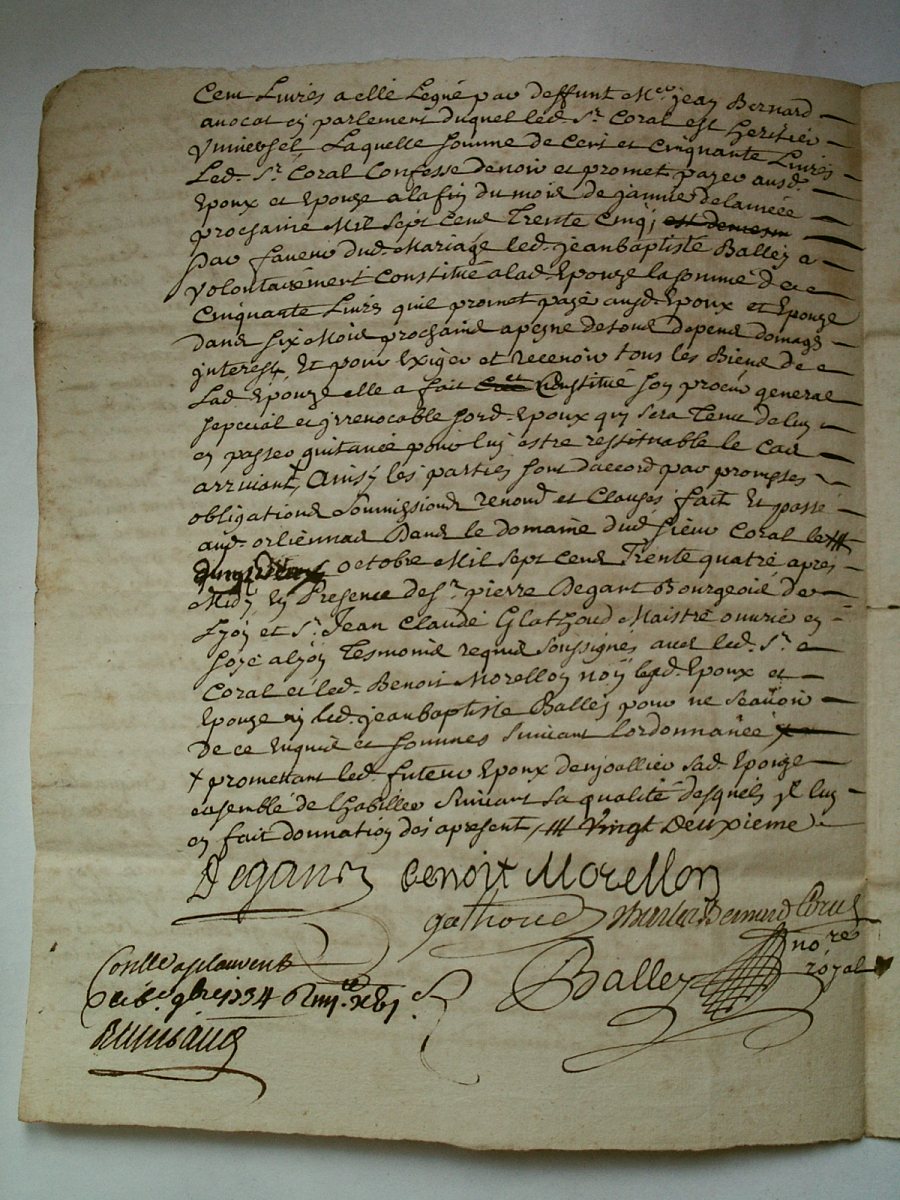 Cent Livres a elle Legué par deffunt Me. jean Bernard
avocat en parlement duquel led. Sr. Coral est heritier
Vniversel Laquelle somme de Cent et Cinquante Livres
Led. Sr. Coral Confesse devoir et promet payer ausd.
Epoux et Epouze a la fin du mois de janvier de lannée
prochaine Mil Sept Cens Trente Cinq
par faveur dud. Mariage led. jean baptiste Balley a
volontairement Constitué a lad. Epouze la somme de
Cinquante Livres quil promet payé ausd. Epoux et Epouze
dans Six Mois prochains a peyne de tous depens domages
jnterests, Et pour Exiger et recevoir tous les Biens de
Lad. Epouze elle a fait Constitué son procur general
sepecial et jrrevocable sond. Epoux qui sera Tenu de luy
en passer quitance pour luy estre restituable le Cas
arrivant, Ainsy les parties sont daccord par promesses
obligations Soumissions renons et Clauses fait Et passé
aud. orliennas Dans le domaine dud. sieur Coral le
octobre Mil Sept cens Trente quatre apres
Midy, En Presence de Sr. pierre Degant Bourgeois de
Lyon et Sr. Jean Claude Glathoud Maistre ouvrie en
soye a lyon Tesmoins requis Soussignés avec led. Sr.
Coral et led. Benoit Morellon non lesd. Epoux et
Epouze ny led. jean baptiste Balley pour ne Scavoir
de ce Enquis et sommes Suivant lordonnance
+ promettant led. futeur Epoux denjoallier sad. Epouze
ensemble de lhabiller Suivant sa qualité desquels jl luy
en fait donnation des apresent, /// Vingt Deuxieme
Degant Benoit Morellon
gathoud Bernard Coral
Balley nore
royal
8bre 1734